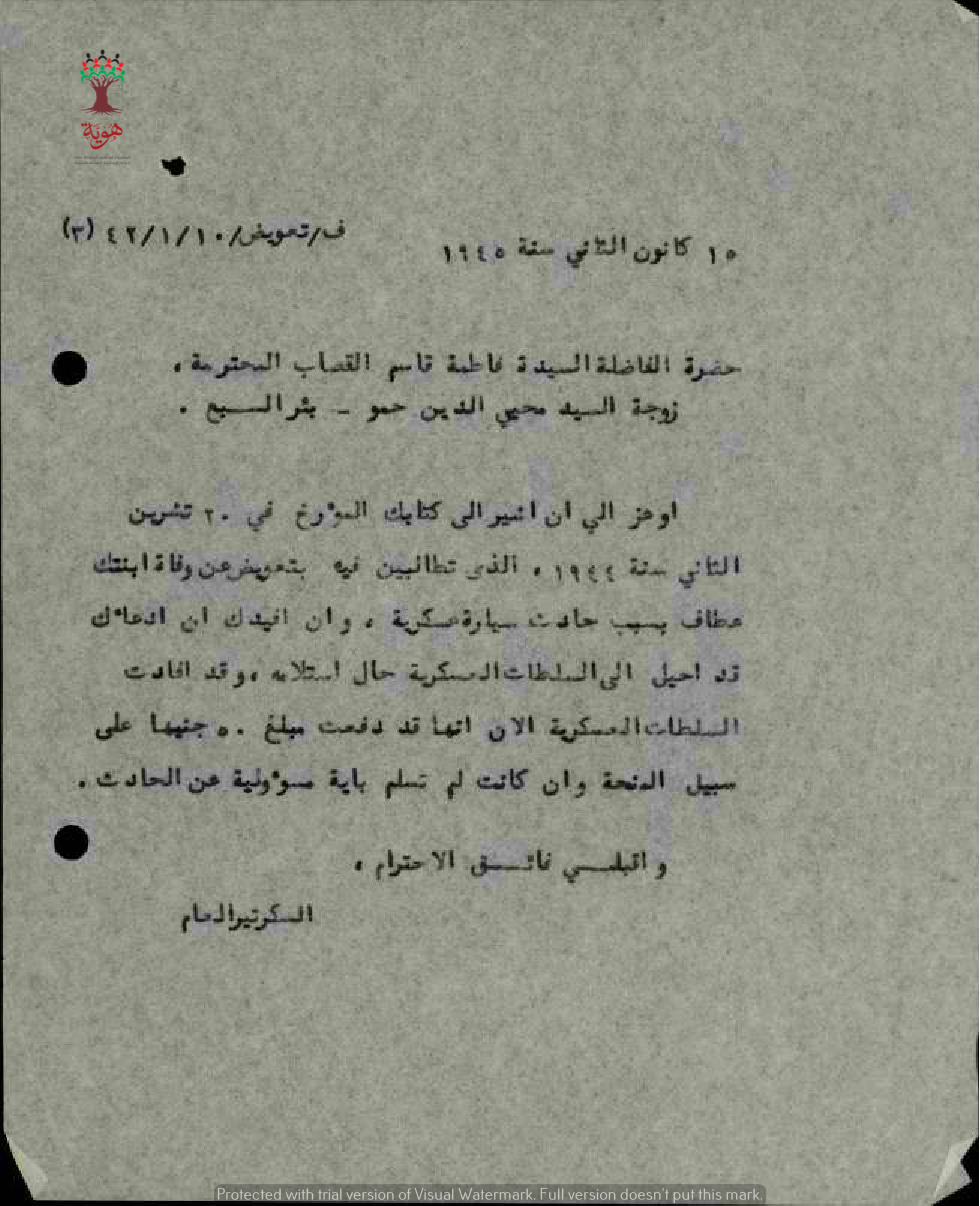 هوية
ف/تعويض/٤٢/١/١٠ (٣)
١٥ كانون الثاني سنة ١٩٤٥
حضرة الفاضلة السيدة فاطمة قاسم القصاب المحترمة ،
زوجة السيد محيي الدين حمو - بئر السبع .
اوعز الي ان اشير الى كتابك المؤرخ في ٢٠ تشرين
الثاني سنة ١٩٤٤ ، الذى تطالبين فيه بتعويض عن وفاة ابنتك
عطاف بسبب حادث سيارة عسكرية ، وان افيدك ان ادعاءك
قد احيل الى السلطات العسكرية حال استلامه ، وقد افادت
السلطات العسكرية الان انها قد دفعت مبلغ ٥٠ جنيها على
سبيل المنحة وان كانت لم تسلم باية مسوءولية عن الحادث .
و اقبلــي فائــق الاحترام ،
السكرتير العام
Protected with trial version of Visual Watermark. Full version doesn't put this mark.